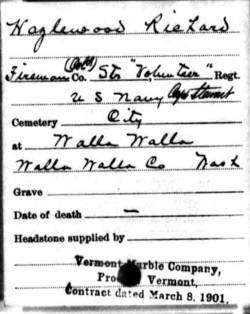 Hazlewood Richard
Fireman Co. Str "Volunteer" Regt.
U S Navy
Cemetery City
at Walla Walla
Walla Walla Co Wash
Grave
Date of death —
Headstone supplied by
Vermont Marble Company,
Proctor, Vermont,
Contract dated March 8, 1901.